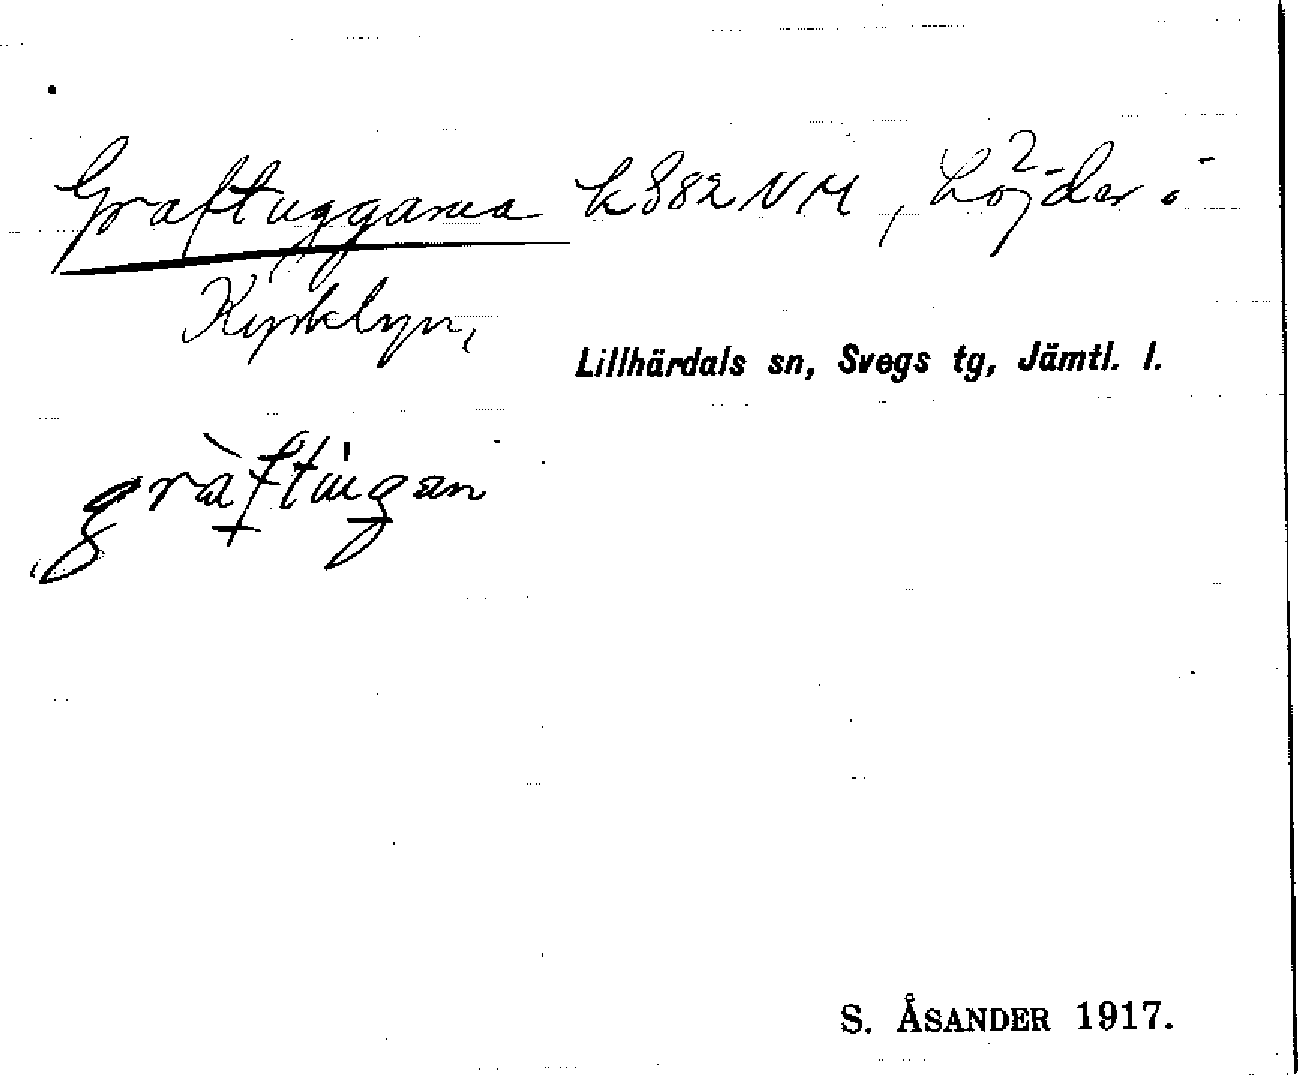 Graftuggarna k 882 NM, 2 höjder i
Kyrkbyn,
Lillhärdals sn, Svegs tg, Jämtl. l.
gràftúgan
S. ÅSANDER 1917.